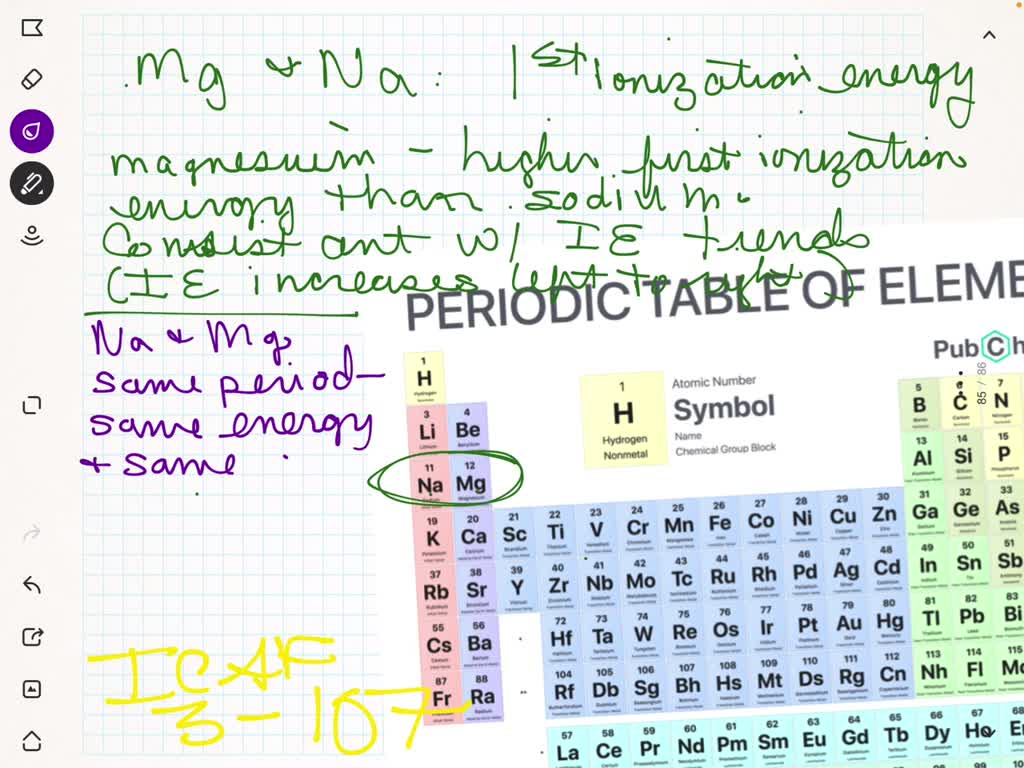 Mg + Na: 1st ionization energy
magnesuim - higher first ionization
energy than sodium.
Consistant w/ IE trends
(IE increases left to right)
Na & Mg
same period-
same energy
+ same
ICAF
3-107
PERIODIC TABLE OF ELEME
PubCh
85 / 86
1
H
Hydrogen
Nonmetal
Atomic Number
Symbol
Name
Chemical Group Block
1
H
Hydrogen
3 4
Li Be
Lithium Beryllium
11 12
Na Mg
Magnesium
5 6 7
B C N
13 14 15
Al Si P
19 20 21 22 23 24 25 26 27 28 29 30 31 32 33
K Ca Sc Ti V Cr Mn Fe Co Ni Cu Zn Ga Ge As
37 38 39 40 41 42 43 44 45 46 47 48 49 50 51
Rb Sr Y Zr Nb Mo Tc Ru Rh Pd Ag Cd In Sn Sb
55 56 72 73 74 75 76 77 78 79 80 81 82 83
Cs Ba Hf Ta W Re Os Ir Pt Au Hg Tl Pb Bi
87 88 104 105 106 107 108 109 110 111 112 113 114 115
Fr Ra Rf Db Sg Bh Hs Mt Ds Rg Cn Nh Fl Mc
57 58 59 60 61 62 63 64 65 66 67 68
La Ce Pr Nd Pm Sm Eu Gd Tb Dy Ho Er